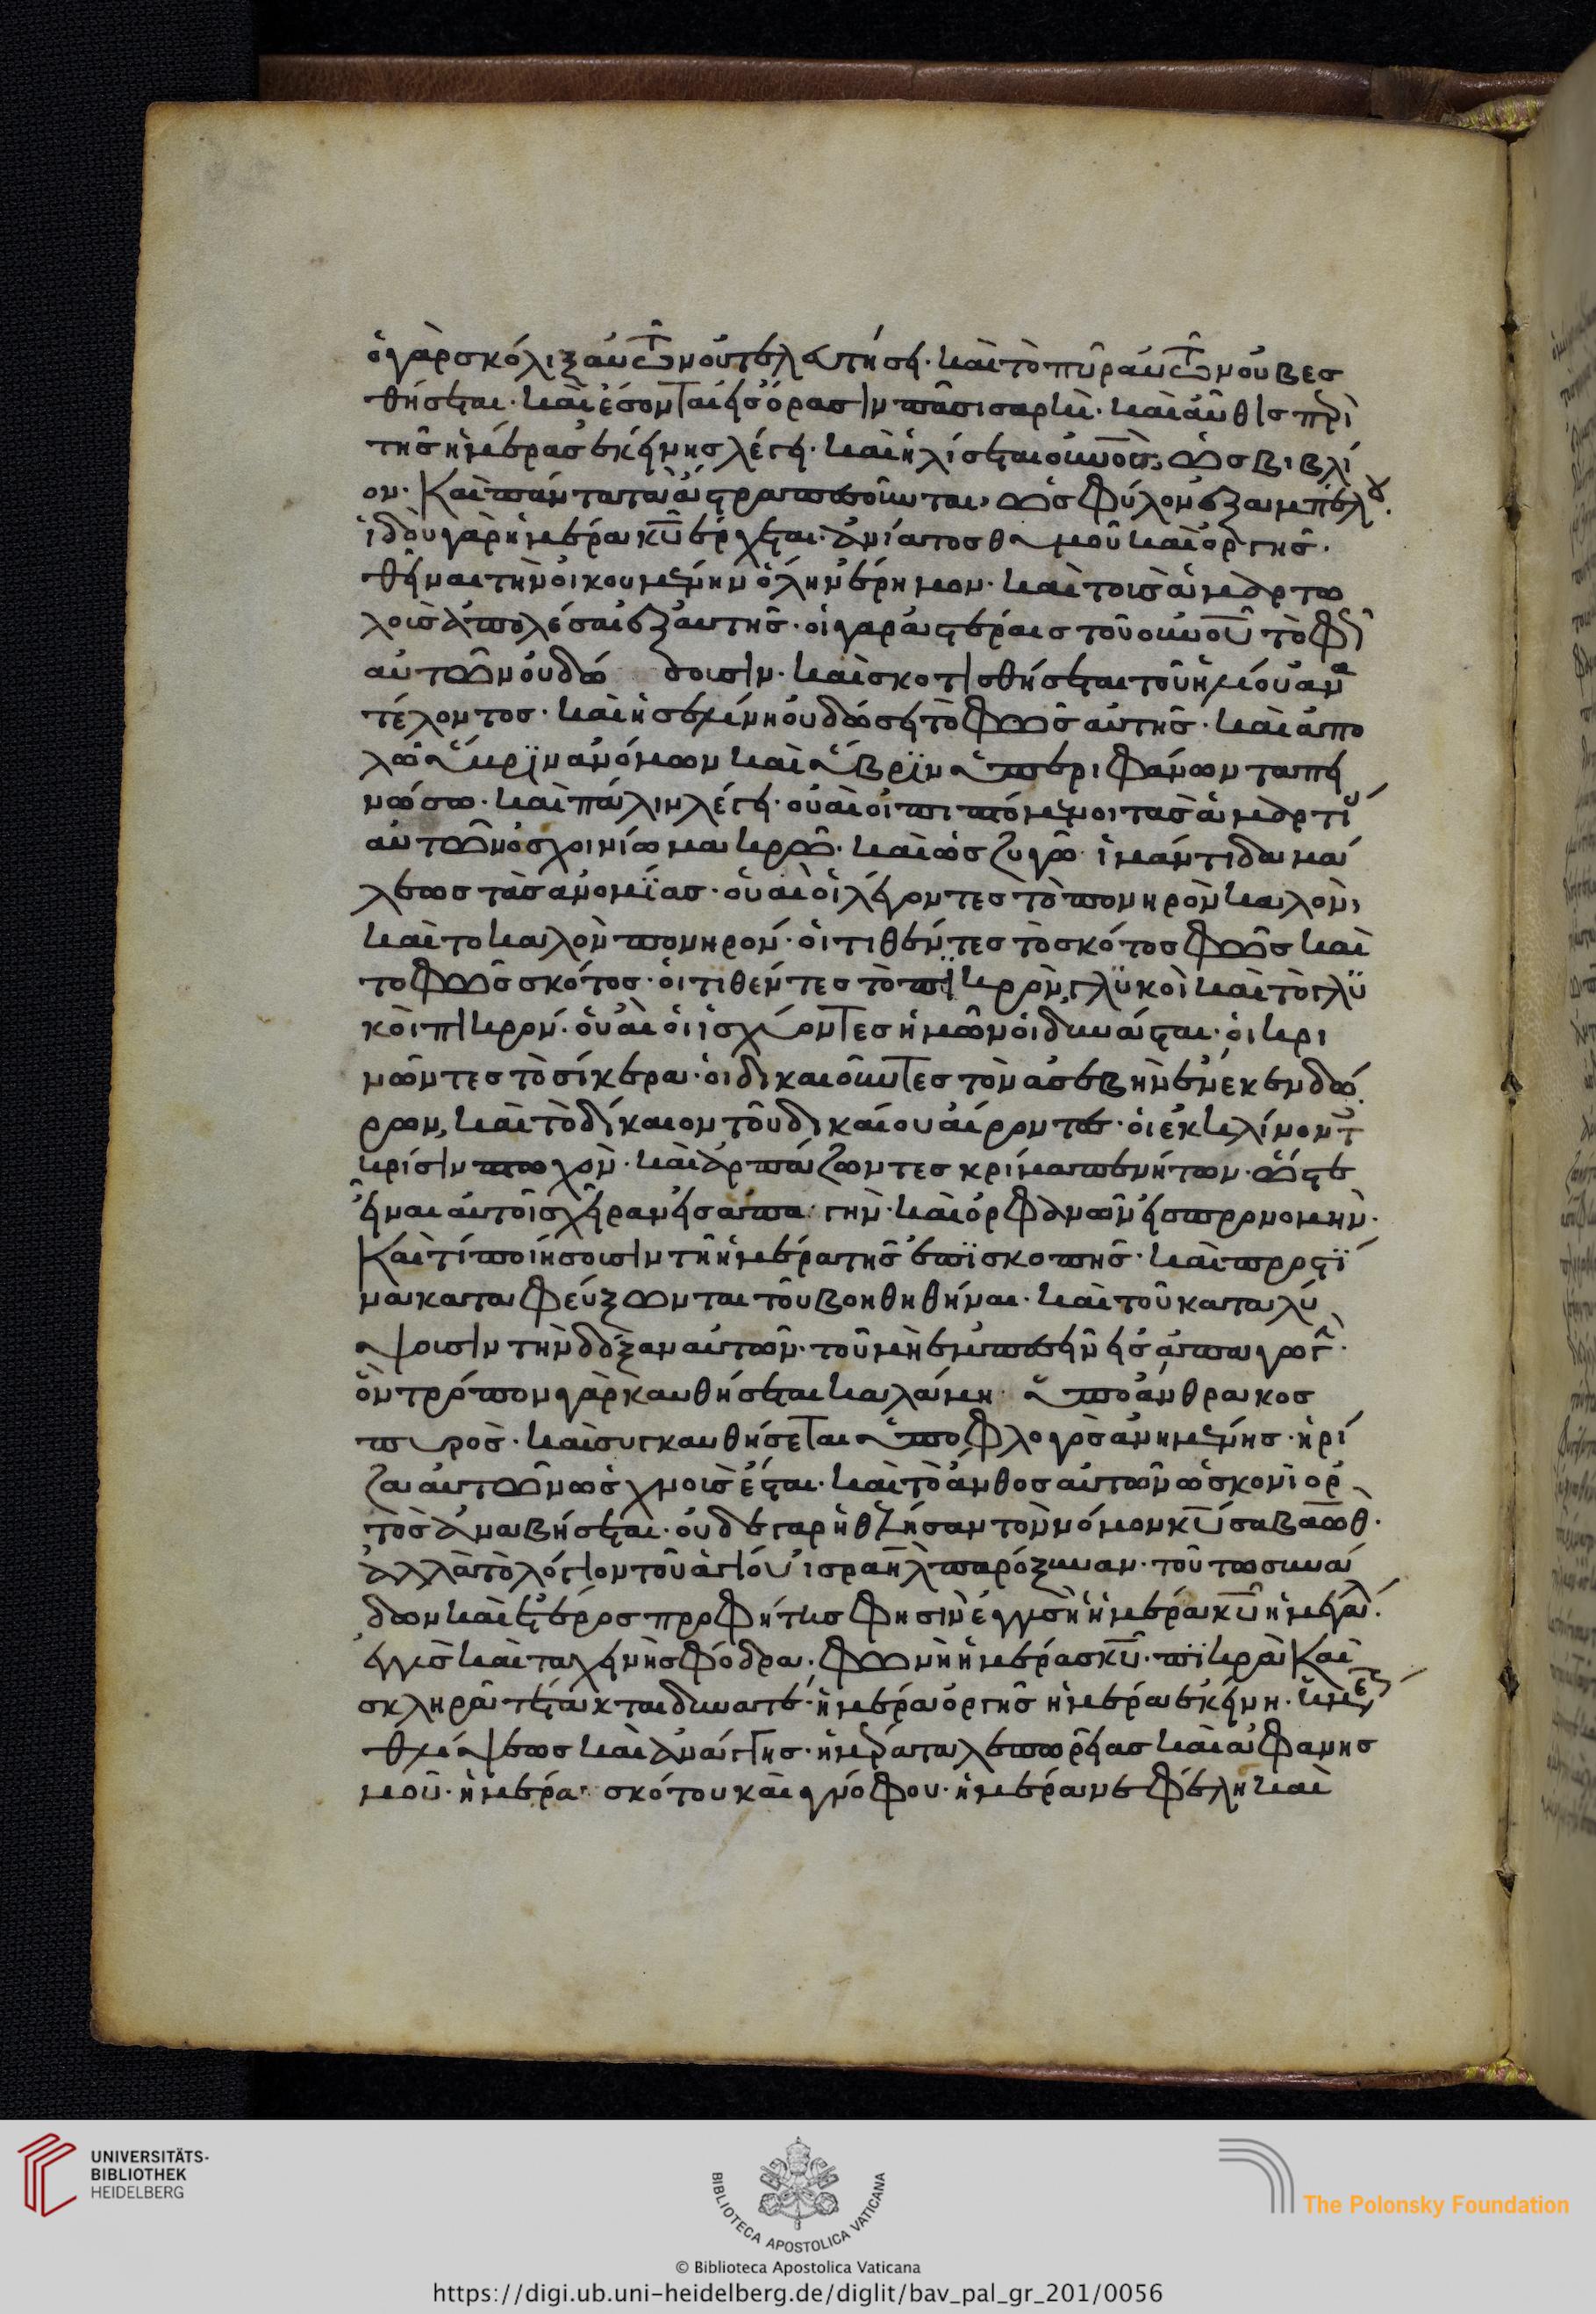 ὁ γὰρ σκόλιξ αὐτῶν οὐ τελευτήσει· καὶ τὸ πῦρ αὐτῶν οὐ βεσ
θήσεται· καὶ ἔσονται εἰς ὅρασιν πᾶσι σαρκὶ· καὶ αὖθις περὶ
τῆς ἡμέρας ἐκείνης λέγει· καὶ ἡλίσεται οὐνὸς, ὡς βιβλί
ον· Καὶ πάντα τὰ ἄστρα πεσοῦνται, ὡς φύλον ἐξ ἀμπέλου·
ἰδοὺ γὰρ ἡμέρα κῦ ἔρχεται. ἀνίατος θυμοῦ καὶ ὀργῆς·
θεῖναι τὴν οἰκουμένην ὅλην ἔρημον· καὶ τοὺς ἁμαρτω
λοὺς ἀπολέσαι ἐξ αὐτῆς· οἱ γὰρ ἀστέρες τοῦ οὐνοῦ τὸ φῶς
αὐτῶν οὐ δώ σουσιν· καὶ σκοτισθήσεται τοῦ ἡλίου ἀνα
τέλοντος· καὶ ἡ σελήνη οὐ δώσει τὸ φῶς αὐτῆς· καὶ ἀπο
λῶ ὕβριν ἀνόμων καὶ ὕβριν ὑπεριφάνων ταπει
νώσω· καὶ πάλιν λέγει· οὐαὶ οἱ ἐπισπόμενοι τὰς ἁμαρτί
αὐτῶν ὁ σχοινίω μακρῶ· καὶ ὡς ζυγῶ ἱμάντι δαμά
λεως τὰς ἀνομίας· οὐαὶ οἱ λέγοντες τὸ πονηρὸν καλὸν,
καὶ τὸ καλὸν πονηρόν· οἱ τιθέντες τὸ σκότος φῶς καὶ
τὸ φῶς σκότος· οἱ τιθέντες τὸ πικρὸν, γλυκοὶ καὶ τὸ γλυ
κοὶ πικρόν· οὐαὶ οἱ ἰσχύοντες ἡμῶν οἱ δυνάσται· οἱ κρι
νῶντες τὸ σίκερα· οἱ δικαιοῦντες τὸν ἀσεβῆν ἕνεκεν δώ
ρων, καὶ τὸ δίκαιον τοῦ δικαίου αἴροντες· οἱ ἐκκλίνοντ
κρίσιν πτωχὸν· καὶ ἁρπάζωντες κρίμα πενήτων· ὥστε
εἶναι αὐτοῖς χῆραν εἰς ἁπαγὴν· καὶ ὀρφανῶν εἰς προνομὴν·
Καὶ τί ποιήσουσιν τῆ ἡμέρα τῆς ἐπισκοπῆς· καὶ πρὸς τί
να καταφεύξωνται τοῦ βοηθηθῆναι· καὶ τοῦ καταλύ
ψουσιν τὴν δόξαν αὐτῶν· τοῦ μὴ ἐμπεσεῖν εἰς ἀπαγωγ·
ὃν τρόπον γὰρ καυθήσεται καλάμη ὑπὸ ἄνθρακος
πυρὸς· καὶ συγκαυθήσεται ὑπὸ φλογὸς ἀνημένης· ἡ ρί
ζα αὐτῶν ὡς χνοὺς ἔσται· καὶ τὸ ἄνθος αὐτῶν ὡς κονιορ
τὸς ἀναβήσεται. οὐδὲ γὰρ ἠθέλησαν τὸν νόμον κῦ σαβαὼθ·
ἀλλὰ τὸ λόγιον τοῦ ἁγίου ἰσραὴλ παρόξυναν· τούτω συνά
δων καὶ ἕτερος προφήτης φησὶν ἐγγὺς ἡ ἡμέρα κῦ ἡ μεγάλ·
ἐγγὺς καὶ ταχεῖν ἡ σφόδρα· φωνὴ ἡμέρας κῦ· πικρὰ Καὶ
σκληρᾶ τέτακται δυνατὲ· ἡμέρα ὀργῆς ἡμέρα ἐκείνη· ἡμέρα
θλίψεως καὶ ἀνάγκης· ἡμέρα ταλεπωρείας καὶ ἀφανησ
μοῦ· ἡμέρα σκότου καὶ γνόφου· ἡμέρα νεφέλη καὶ
UNIVERSITÄTS-
BIBLIOTHEK
HEIDELBERG
BIBLIOTECA APOSTOLICA VATICANA
The Polonsky Foundation
© Biblioteca Apostolica Vaticana
https://digi.ub.uni-heidelberg.de/diglit/bav_pal_gr_201/0056